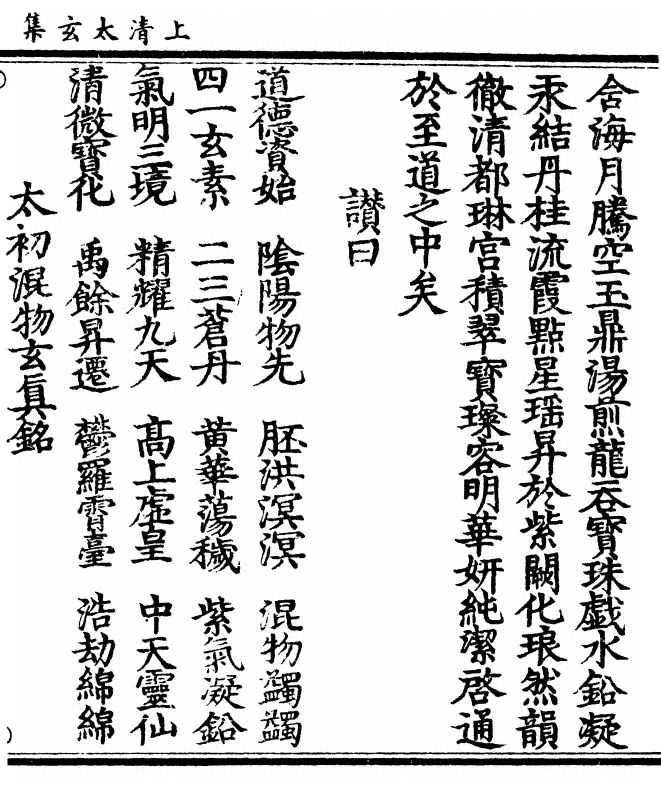 上清太玄集
含海月騰空玉鼎湯煎龍吞寶珠戲水鉛凝
汞結丹桂流霞點星瑶昇於紫闕化琅然韻
徹清都琳宮積翠寶璨容明華妍純潔啓通
於至道之中矣
讃曰
道德資始 陰陽物先 胚洪溟溟 混物蠲蠲
四一玄素 二三蒼丹 黄華蕩穢 紫氣凝鉛
氣明三境 精耀九天 高上虛皇 中天靈仙
清微寶化 禹餘昇遷 鬱羅霄臺 浩劫綿綿
太初混物玄真銘